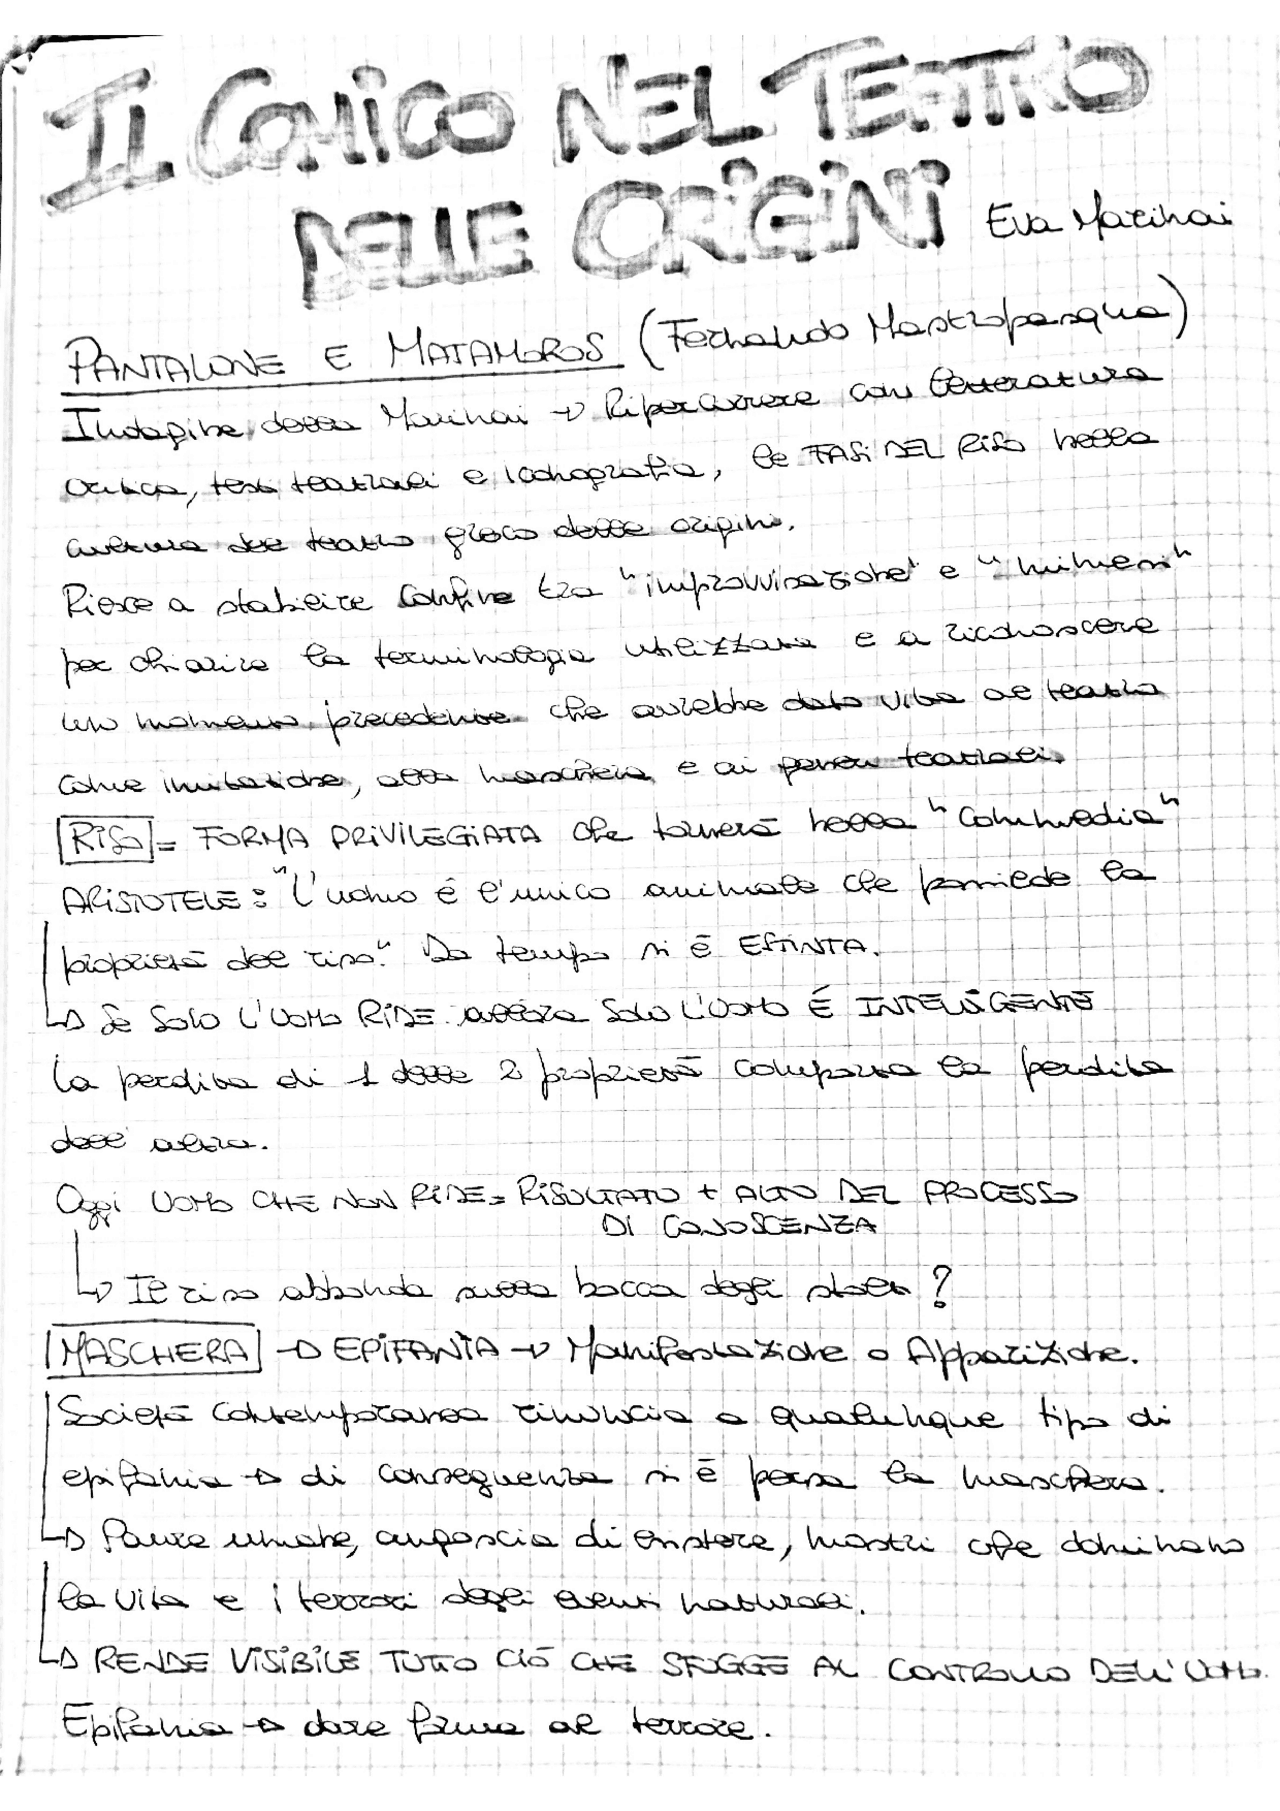 IL COMICO NEL TEATRO
DELLE ORIGINI Eva Marinai
PANTALONE E MATAMOROS (Fernando Mastropasqua)
Indagine della Marinai → Ripercorrere con letteratura
critica, testi teatrali e iconografia, le FASI DEL RISO nella
cultura del teatro greco delle origini.
Riesce a stabilire confine tra "improvvisazione" e "mimesi"
per chiarire la terminologia utilizzata e a riconoscere
un momento precedente che avrebbe dato vita al teatro
come imitazione, alla maschera e ai generi teatrali.
RISO = FORMA PRIVILEGIATA che tornerà nella "Commedia"
ARISTOTELE: "L'uomo é l'unico animale che possiede la
proprietà del riso." Da tempo si é ESTINTA.
↳ Se SOLO L'UOMO RIDE allora SOLO L'UOMO É INTELLIGENTE
La perdita di 1 delle 2 proprietà comporta la perdita
dell'altra.
Oggi UOMO CHE NON RIDE = RISULTATO + ALTO DEL PROCESSO
DI CONOSCENZA
↳ Il riso abbonda sulla bocca degli stolti?
MASCHERA → EPIFANIA → Manifestazione o Apparizione.
Società contemporanea rinuncia a qualunque tipo di
epifania → di conseguenza si é persa la maschera.
↳ Paure umane, angoscia di esistere, mostri che dominano
la vita e i terrori degli eventi naturali.
↳ RENDE VISIBILE TUTTO CIÓ CHE SFUGGE AL CONTROLLO DELL'UOMO.
Epifania → dare forma al terrore.